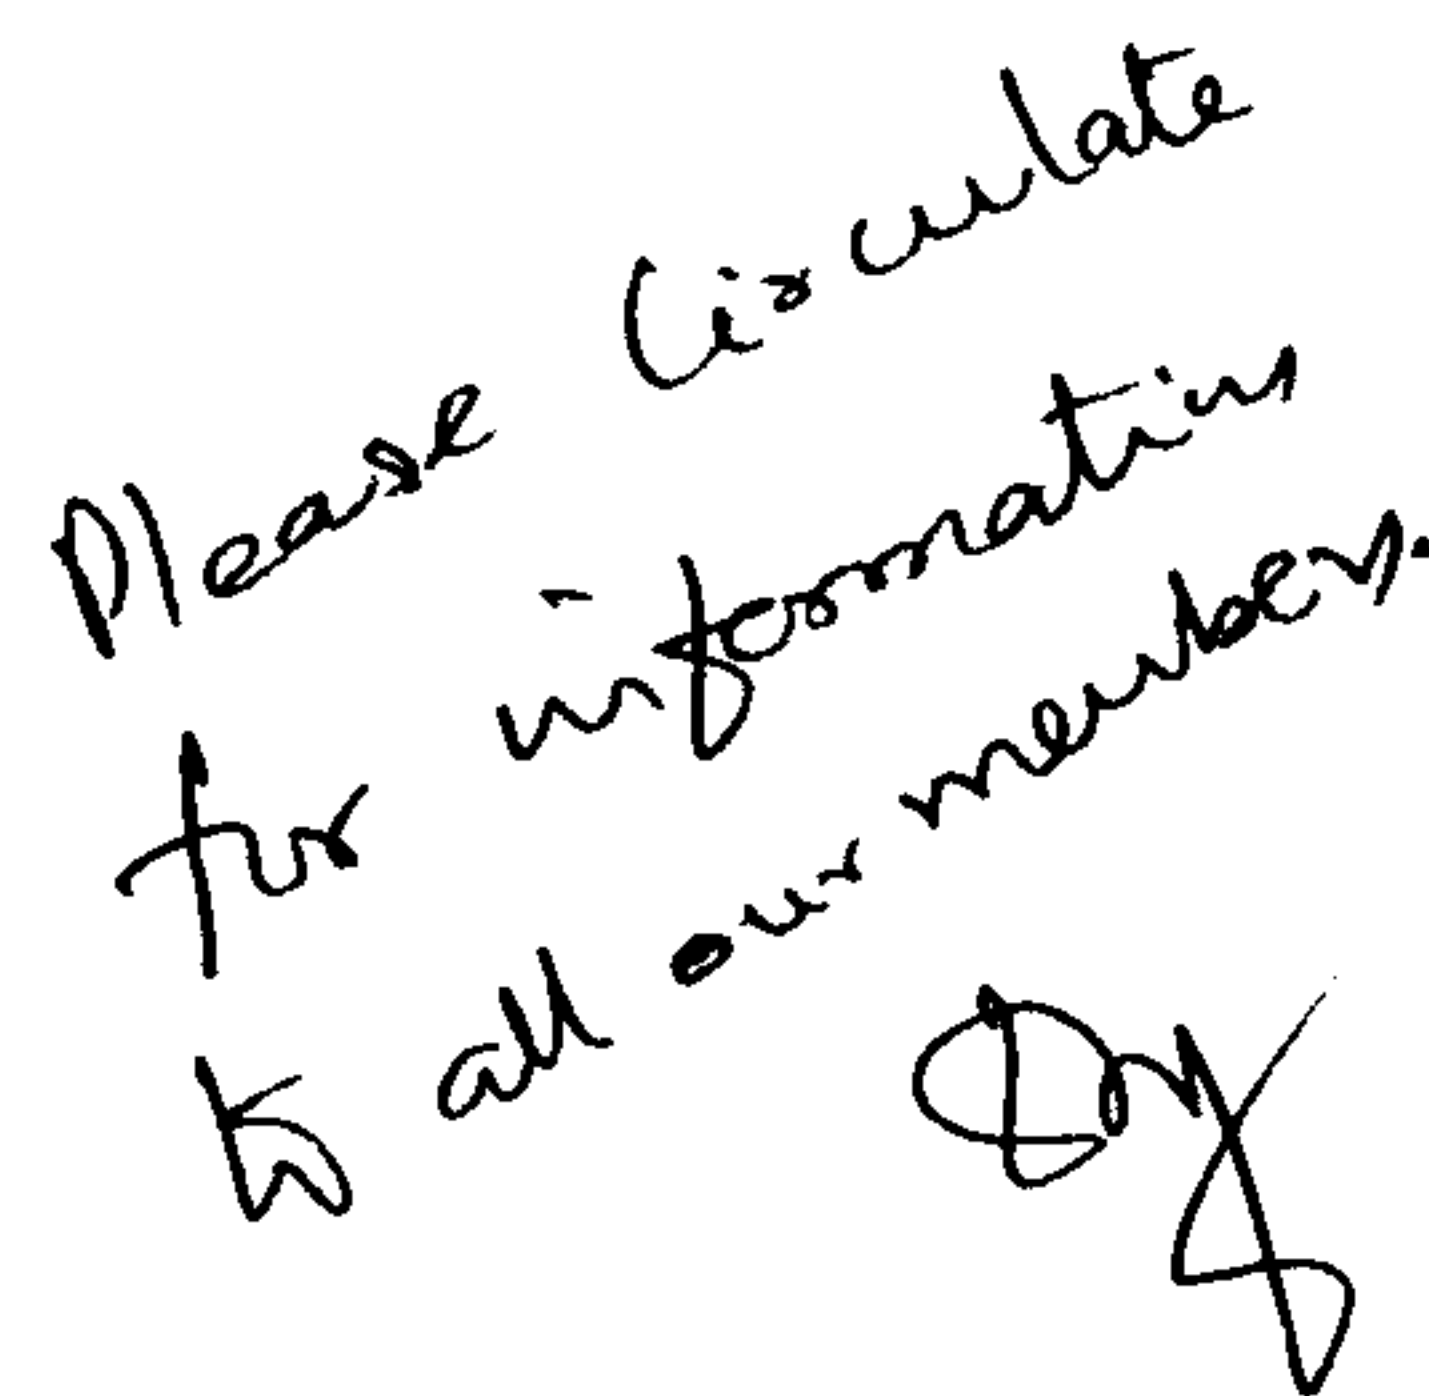 Please Circulate
for information
to all our members.